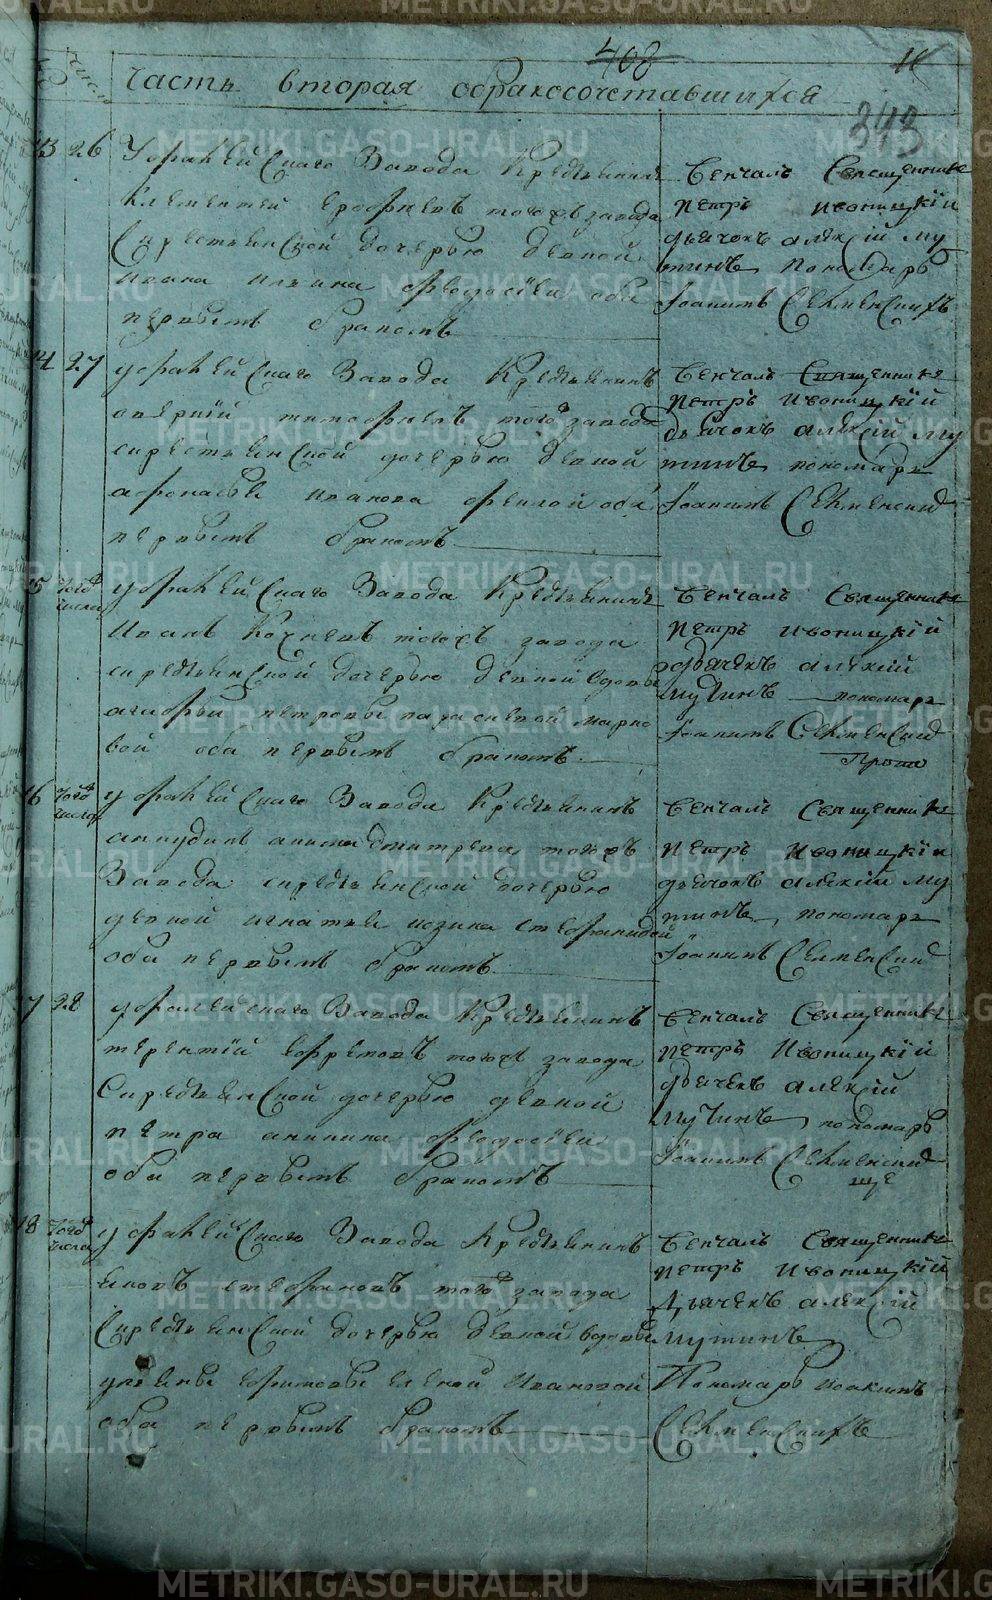 408
11
343
часть вторая обракосочетавшихся
число
13 26 Уфалейскаго Завода Крестьянинъ
Климентей Ерофѣевъ тогожъ завода
Скрестьянской дочерью девкой
Ивана Ильина Феодосіей оба
первымъ бракомъ
Венчалъ Священникъ
Петръ Ивоницкій
дьячокъ алексій му
тинъ пономарь
Іоакимъ Секменскихъ
14 27 уфалейскаго Завода Крестьянинъ
аверкій тимофѣевъ того завода
скрестьянской дочерью девкой
афонасья иванова феклой оба
первымъ бракомъ
Венчалъ Священникъ
Петръ Ивоницкій
дьячокъ алексій му
тинъ пономарь
Іоакимъ Секменский
15 того числа уфалейскаго Завода Крестьянинъ
Иванъ тогожъ завода
скрестьянской дочерью девкой вдовы
петровы марко
вой оба первымъ бракомъ
Венчалъ Священникъ
Петръ Ивоницкій
дьячекъ алексій
мутинъ пономарь
Іоакимъ Секменский
16 того числа уфалейскаго Завода Крестьянинъ
анкудинъ дмитрева тогожъ
Завода скрестьянской дочерью
девкой игнатья козина стефанидой
оба первымъ бракомъ
Венчалъ Священникъ
Петръ Ивоницкій
дьячокъ алексій му
тинъ, пономарь
Іоакимъ Секменский
17 28 уфалейскаго Завода Крестьянинъ
терентій ефремовъ тогожъ завода
Скрестьянской дочерью девкой
петра аникина феодосіей
оба первымъ бракомъ
Венчалъ Священникъ
Петръ Ивоницкій
дьячекъ алексій
мутинъ, пономарь
Іоакимъ Секменский
18 того числа уфалейскаго Завода Крестьянинъ
яковъ стефановъ того завода
Скрестьянской дочерью девкой вдовы
ульяны Ефимовы еленой Ивановой
оба первымъ бракомъ
Венчалъ Священникъ
Петръ Ивоницкій
Дьячекъ алексій
мутинъ
Пономарь иоакимъ
Секменскихъ
METRIKI.GASO-URAL.RU